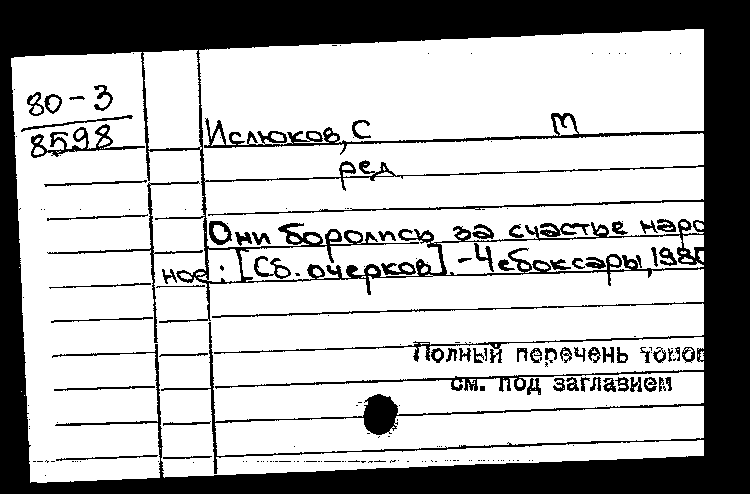 80-3
8598
Ислюков, С М
ред
Они боролись за счастье наро
ное: [Сб. очерков]. - Чебоксары, 1980
Полный перечень томов
см. под заглавием